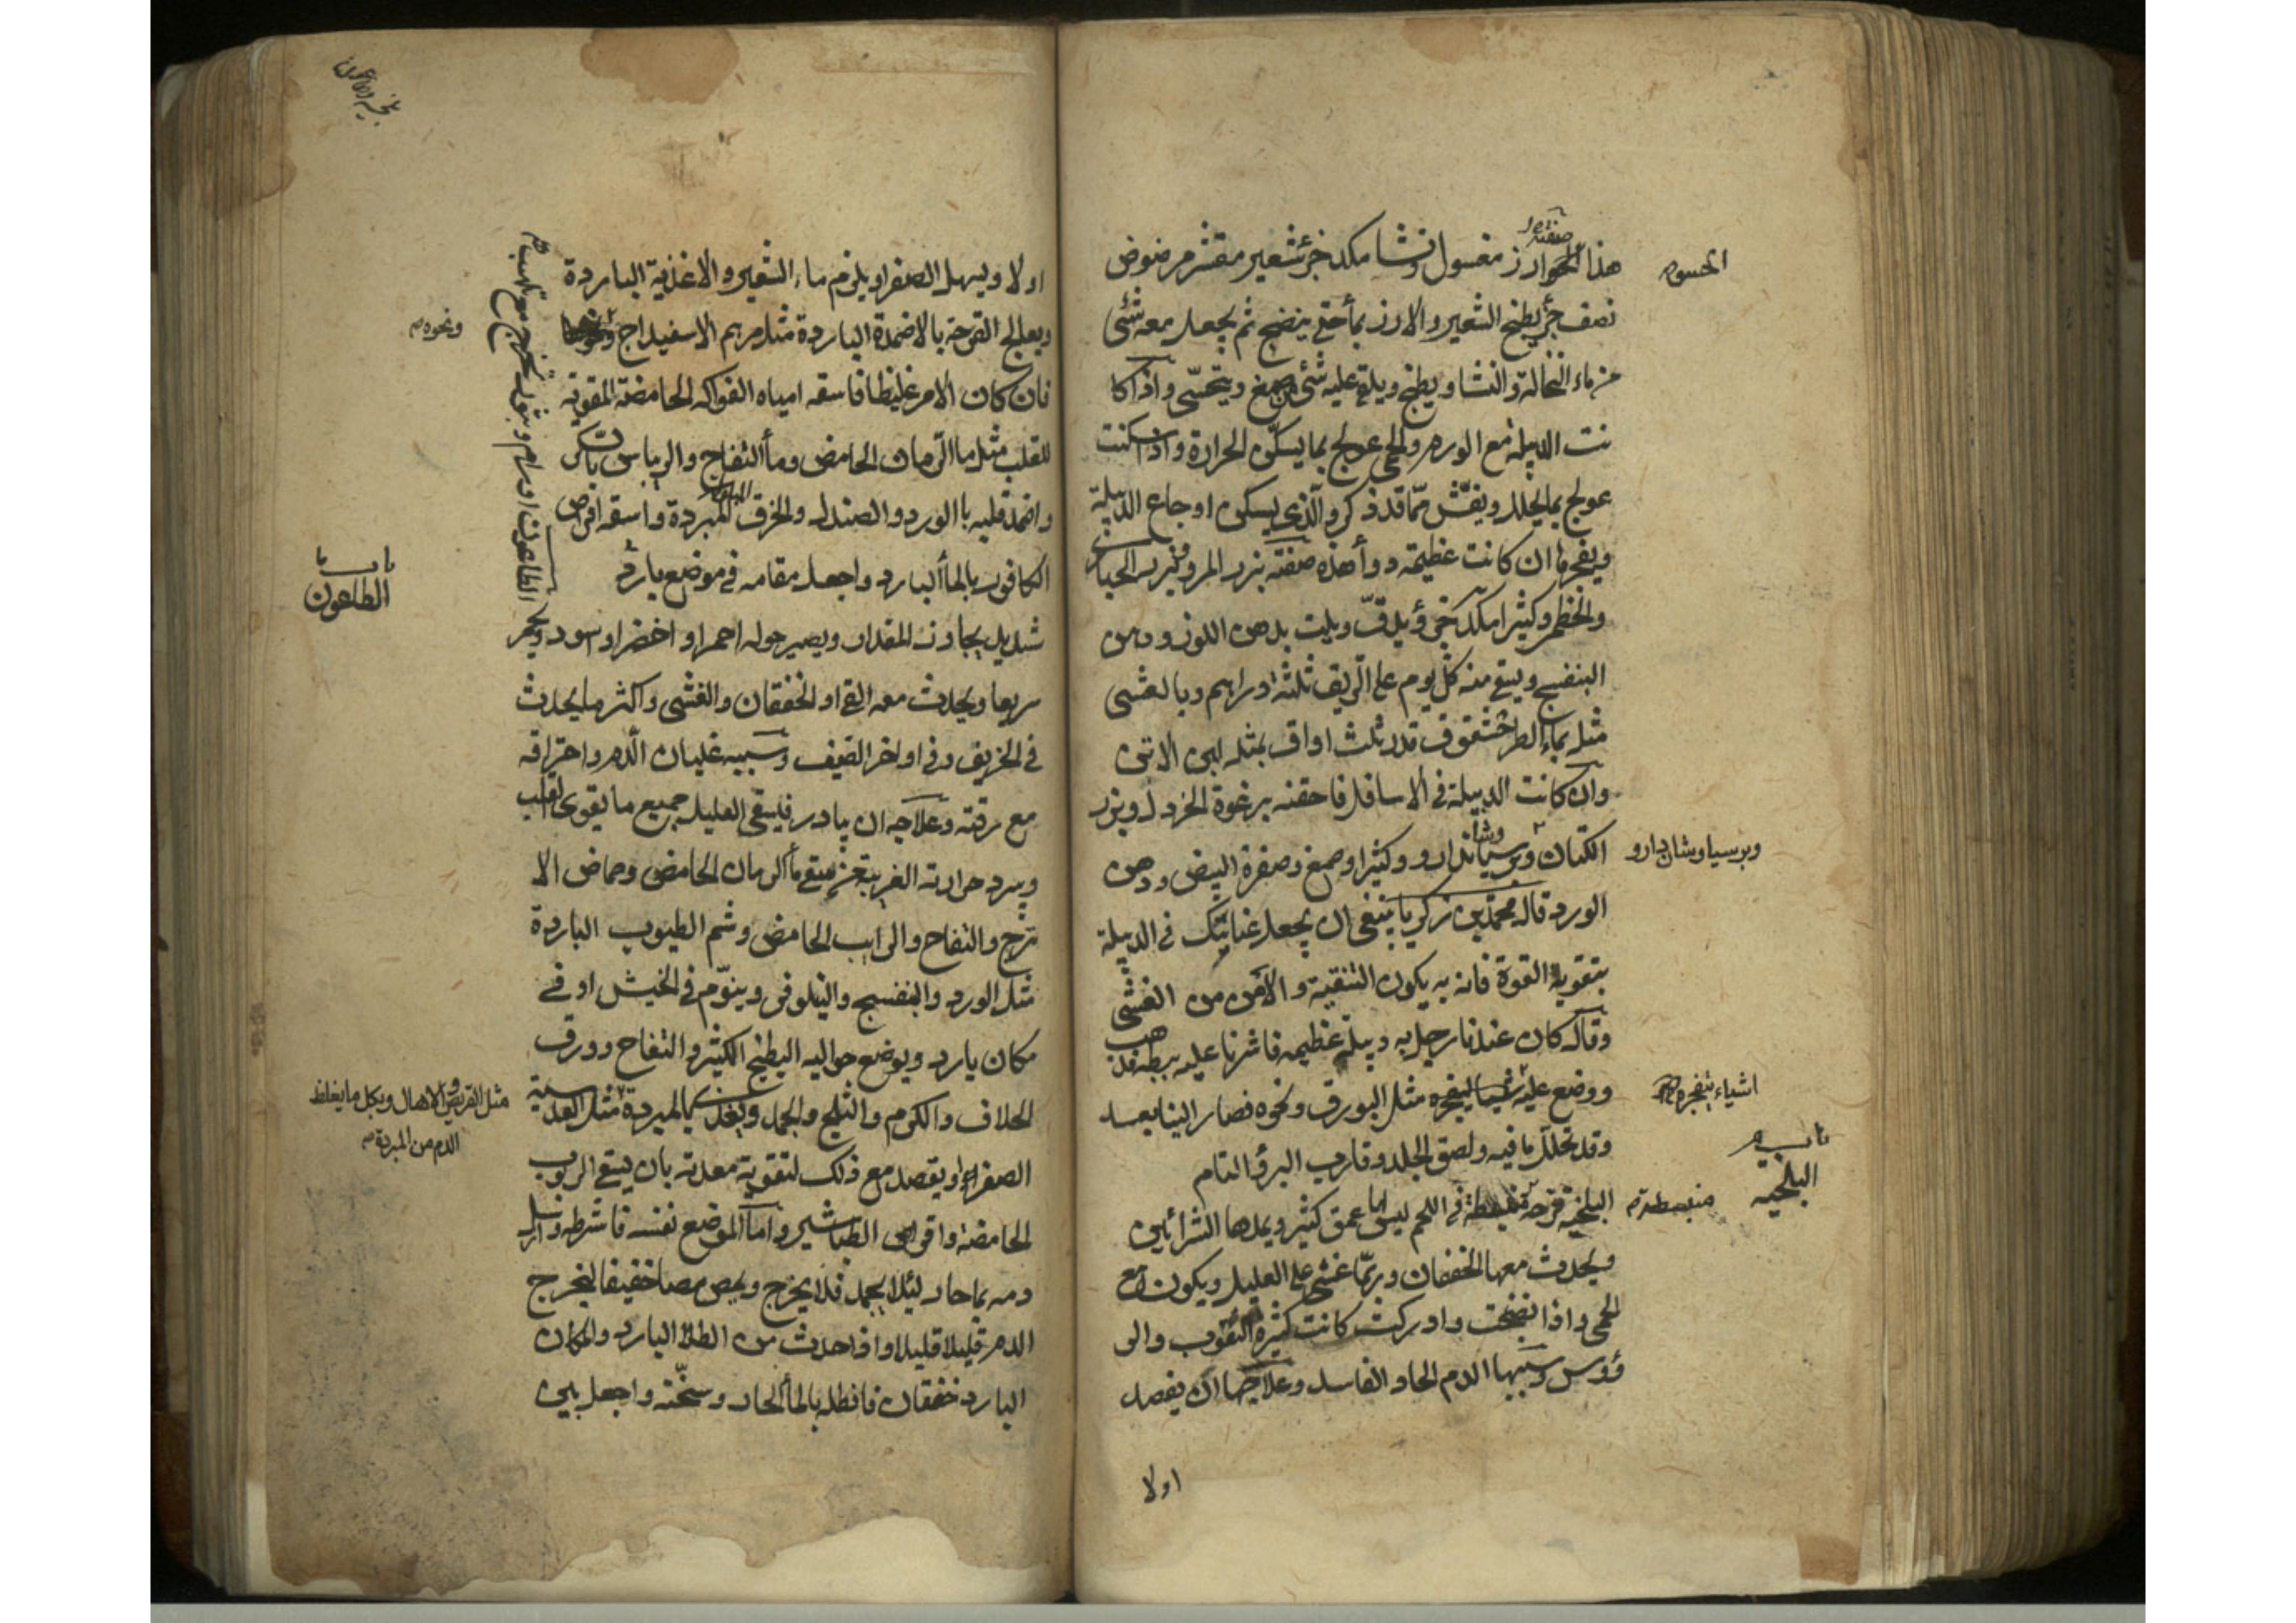 هذا الحو ارز مغسول ونشا مكد جزء شعير مقشر مرضوض
صفته
الحسو
نصف جزء يطبخ الشعير والارز بماء حتى ينضج ثم يجعل معه شئ
من ماء النخالة والنشا ويطبخ ويلقى عليه شئ صمغ ويتحسى واذا كا
نت الدبيلة مع الورم والحمى عولج بما يسكن الحرارة واذا سكنت
عولج بما يحلل ويفش مما قد ذكر والذي يسكن اوجاع الدبيلة
ويفجرها ان كانت عظيمة دواء هذه صفته بزر المرو وبزر الخباز
والخطمي وكثيرا مكد جزء يدق ويلت بدهن اللوز ودهن
البنفسج ويسقى منه كل يوم على الريق ثلثة دراهم وبالعشى
مثله بماء الطرخشقوق قدر ثلث اواق بمثله لبن الاتن
وان كانت الدبيلة في الاسافل فاحقنه برغوة الخردل وبزر
الكتان وكثيرا وصمغ وصفرة البيض ودهن
وبرسياوشان دارو
الورد قال محمد بن زكريا ينبغي ان يجعل عنايتك في الدبيلة
بتقوية القوة فانه به يكون التنقية والامن من الغشى
وقال كان عندنا رجل به دبيلة عظيمه فاشرنا عليه ببطه فذهب
ووضع عليه ليفجره مثل البورق ونحوه فصار الينا بعد
اشياء تنفجره
وقد تحلل ما فيه ولصق الجلد وقارب البرؤ التام
باب
البلخية
البلخية قرحة في اللحم ليس لها عمق كثير ويمدها الشرائين
منبسطة
ويحدث معها الخفقان وربما غشى على العليل ويكون مع
الحمى واذا نضجت وادركت كانت كثيرة الثقوب والر
ؤوس وسببها الدم الحاد الفاسد وعلاجها ان يفصد
اولا
اولا ويسهل الصفرا ويلزم ماء الشعير والاغذية الباردة
ويعالج القرحة بالاضمدة الباردة مثل مرهم الاسفيداج
ونحوه
فان كان الامر غليظا فاسقه امياه الفواكه الحامضة المقوية
للقلب مثل ماء الرمان الحامض وماء التفاح والريباس
واضمد قلبه بالورد والصندل والخرق المبردة واسقه اقراص
الكافور بالماء البارد واجعل مقامه في موضع بارد
باب
الطاعون
الطاعون اورام وبثور تخرج مع تلهب
شديد يجاوز المقدار ويصير حوله احمر او اخضر او اسود ويحمر
سريعا ويحدث معه القئ او الخفقان والغشى واكثر ما يحدث
في الخريف وفي اواخر الصيف وسببه غليان الدم واحتراقه
مع رقته وعلاجه ان يبادر فيسقى العليل جميع ما يقوى القلب
ويبرد حرارته الغريبة ماء الرمان الحامض وحماض الا
ترج والتفاح والرايب الحامض وشم الطيوب الباردة
مثل الورد والبنفسج والنيلوفر وينوم في الخيش او في
مكان بارد ويوضع حواليه البطيخ الكثير والتفاح وورق
الخلاف والكرم والثلج والجمد ويغذى بالمبردة مثل العدسية
مثل القريص والاهلال وبكل ما يغلظ
الدم من المبردة
الصفراء ويقصد مع ذلك لتقوية معدته بان يسقى الربوب
الحامضة واقراص الطباشير واما الموضع نفسه فاشرطه واسل
دمه بماء حار لئلا يجمد فلا يخرج ويمص مصا خفيفا ليخرج
الدم قليلا قليلا واذا حدث من الطلا البارد والمكان
البارد خفقان فانطله بالماء الحار وسخنه واجعل بين